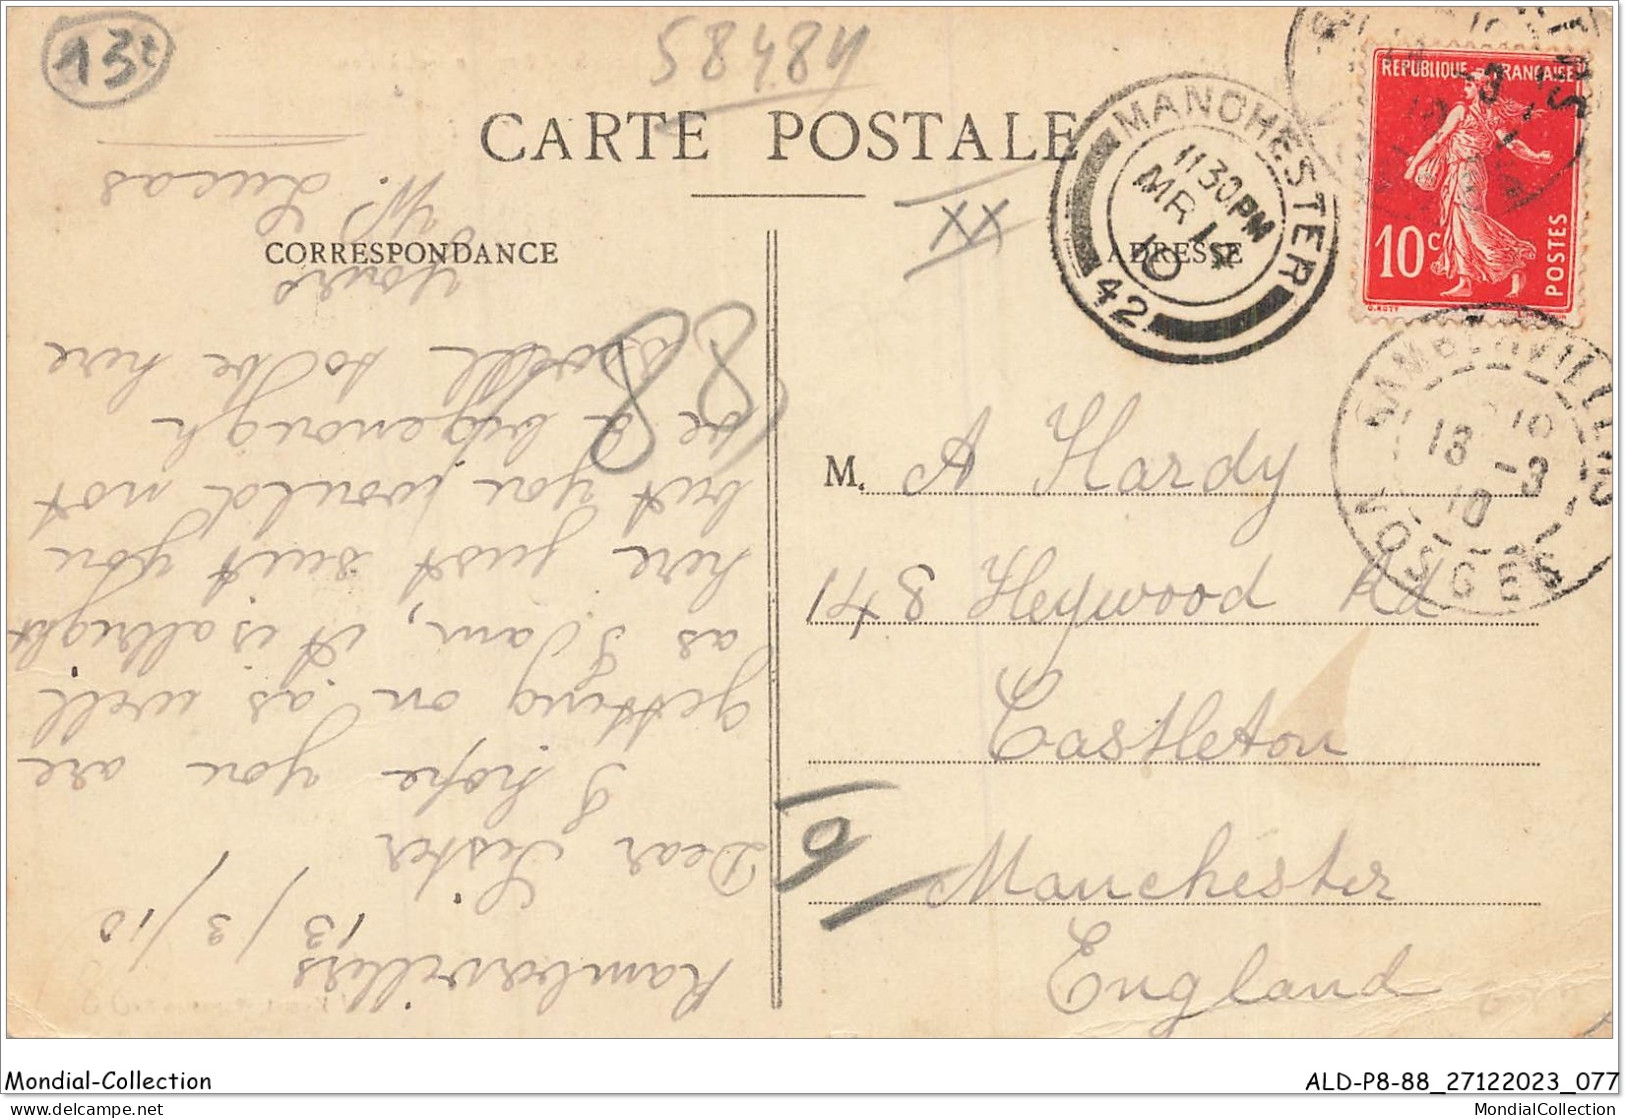 13t
58484
CARTE POSTALE
CORRESPONDANCE
ADRESSE
XX
MANCHESTER
11 30PM
MR 14
10
42
REPUBLIQUE FRANÇAISE
10c
POSTES
RAMBERVILLERS
13 -3
10
VOSGES
88
6
Rambervillers
13/3/10
Dear Sister
I hope you are
getting on as well
as I am, it is allright
here just suit you
but you would not
be a big enough
to be here
Yours
W. Lucas
M. A Hardy
148 Heywood Rd
Castleton
Manchester
England
Mondial-Collection
ALD-P8-88_27122023_077
MondialCollection